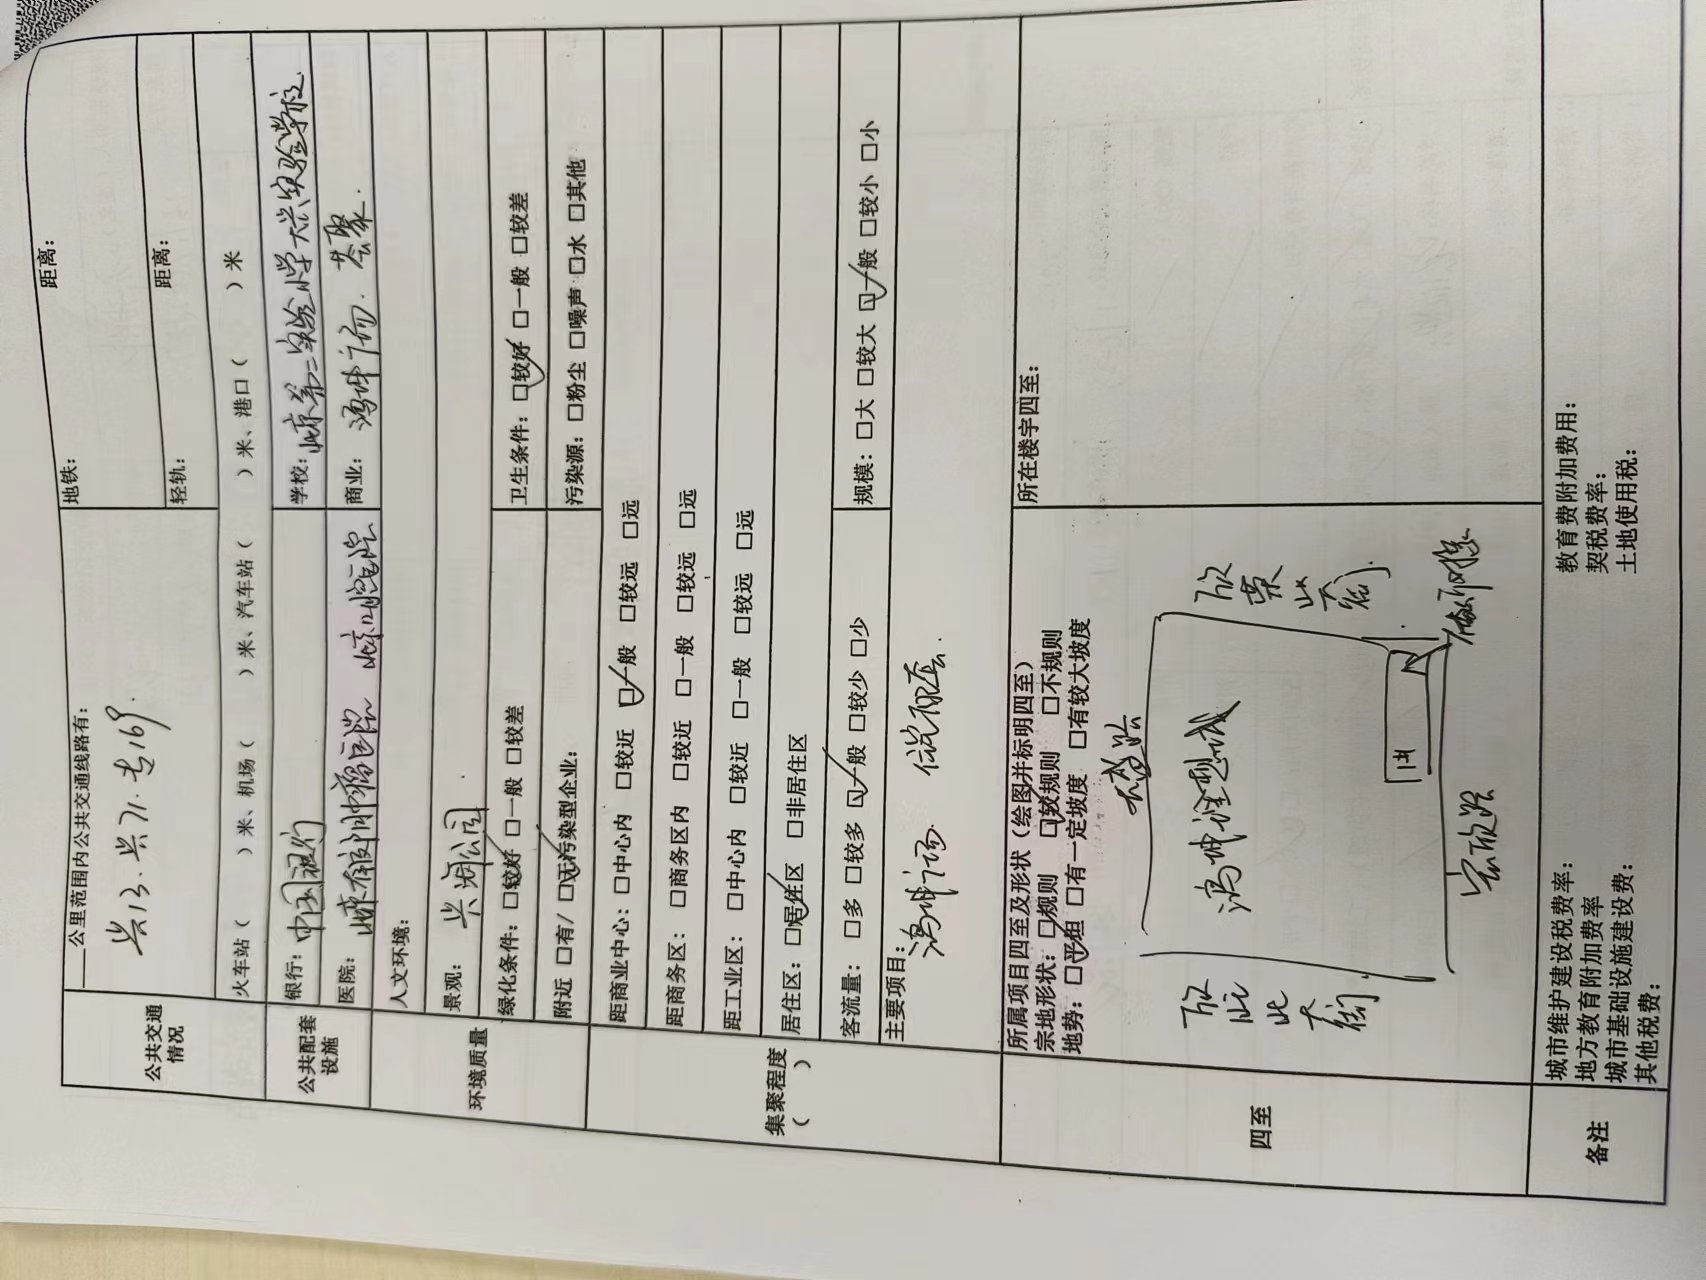 公共交通情况
___公里范围内公共交通线路有：
兴13. 兴71. 专169.
地铁： 距离：
轻轨： 距离：
火车站（ ）米、机场（ ）米、汽车站（ ）米、港口（ ）米
公共配套设施
银行：中国银行
学校：北京第二实验小学大兴实验学校
医院：
商业：鸿坤广场. 荟聚.
环境质量
人文环境：
景观：兴湖公园
绿化条件：☑较好 □一般 □较差
卫生条件：☑较好 □一般 □较差
附近 □有/☑无污染型企业：
污染源：□粉尘 □噪声 □水 □其他
集聚程度（ ）
距商业中心：□中心内 □较近 ☑一般 □较远 □远
距商务区：□商务区内 □较近 □一般 □较远 □远
距工业区：□中心内 □较近 □一般 □较远 □远
居住区：☑居住区 □非居住区
客流量：□多 □较多 ☑一般 □较少 □少
规模：□大 □较大 ☑一般 □较小 □小
主要项目：
鸿坤广场.
四至
所属项目四至及形状（绘图并标明四至）
宗地形状：□规则 ☑较规则 □不规则
地势：☑平坦 □有一定坡度 □有较大坡度
鸿坤理想城
欣荣北大街
宏旭路
所在楼宇四至：
备注
城市维护建设税费率：
地方教育附加费率
城市基础设施建设费：
其他税费：
教育费附加费用：
契税费率：
土地使用税：